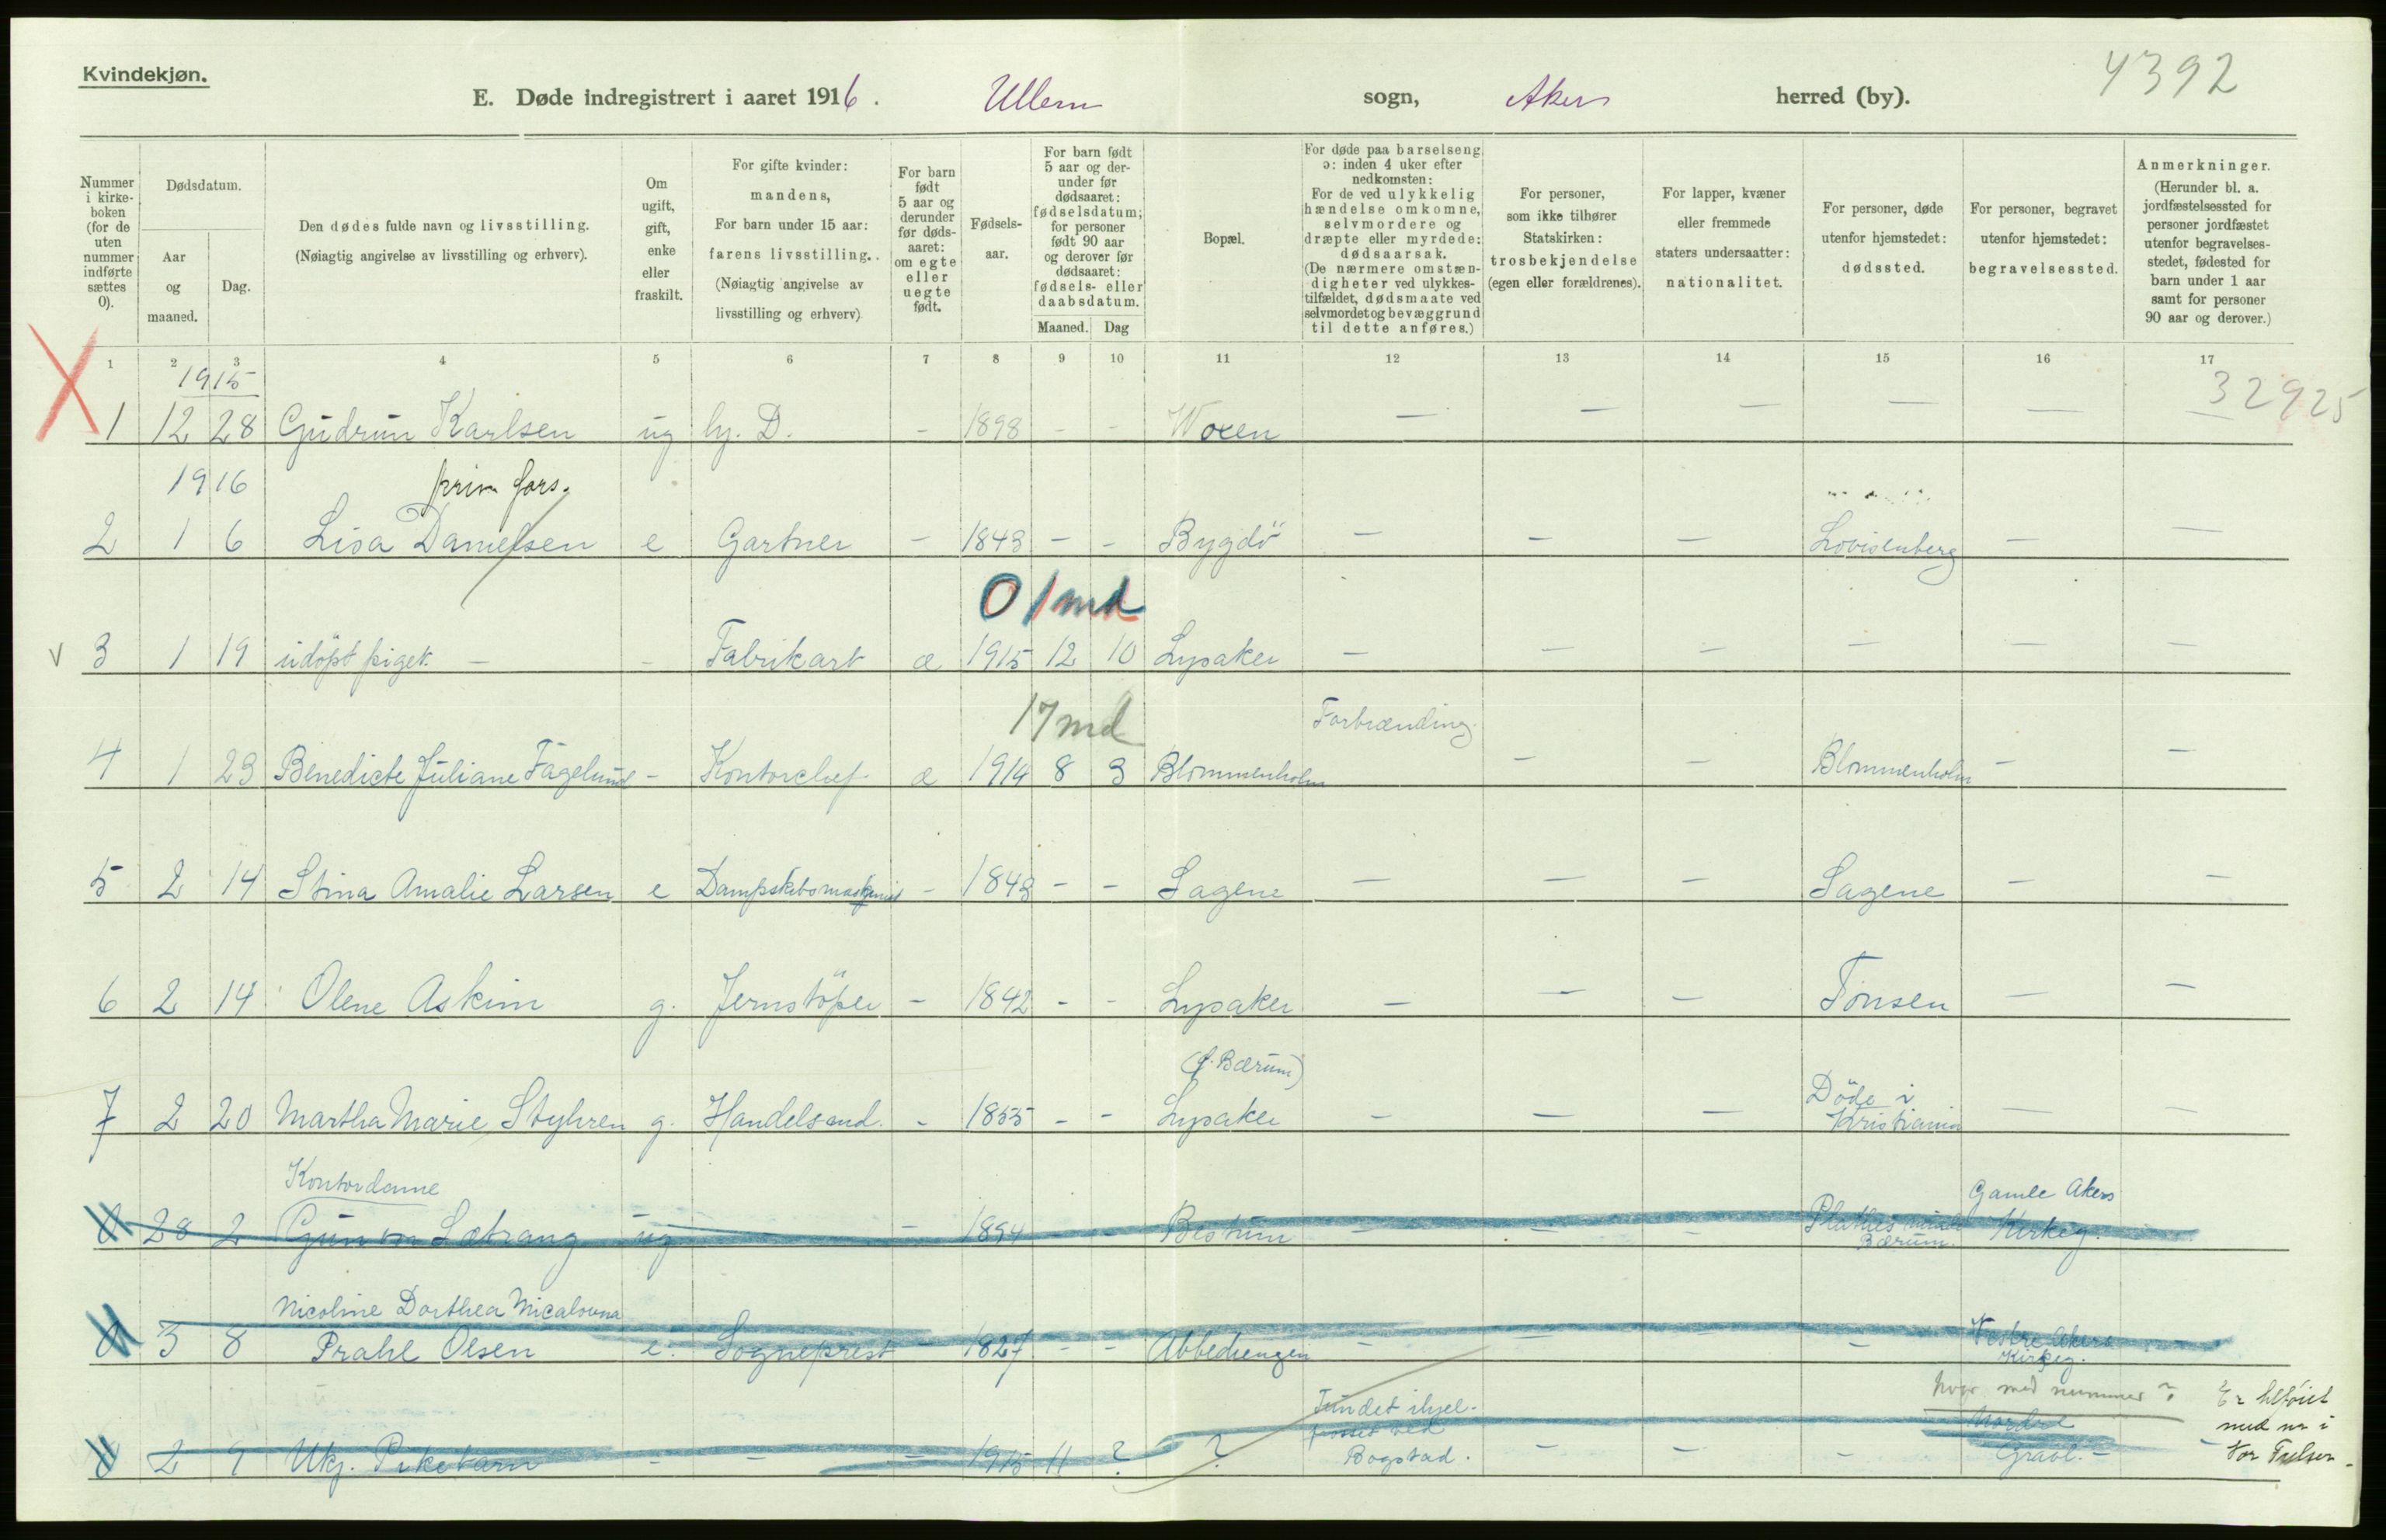 Kvindekjøn.
4392
E. Døde indregistrert i aaret 1916. Ullern sogn, Aker herred (by).
Nummer i kirke- boken (for de uten nummer indførte sættes 0).
Dødsdatum.
Aar og maaned.
Dag.
Den dødes fulde navn og livsstilling.
(Nøiagtig angivelse av livsstilling og erhverv).
Om ugift, gift, enke eller fraskilt.
For gifte kvinder: mandens,
For barn under 15 aar: farens livsstilling.
(Nøiagtig angivelse av livsstilling og erhverv)
For barn født 5 aar og derunder før døds- aaret: om egte eller uegte født.
Fødsels- aar.
For barn født 5 aar og der- under før dødsaaret: fødselsdatum; for personer født 90 aar og derover før dødsaaret: fødsels- eller daabsdatum.
Maaned. Dag
Bopæl.
For døde paa barselseng ɔ: inden 4 uker efter nedkomsten:
For de ved ulykkelig hændelse omkomne, selvmordere og dræpte eller myrdede: dødsaarsak.
(De nærmere omstæn- digheter ved ulykkes- tilfældet, dødsmaate ved selvmordet og bevæggrund til dette anføres.)
For personer, som ikke tilhører Statskirken: trosbekjendelse (egen eller forældrenes).
For lapper, kvæner eller fremmede staters undersaatter: nationalitet.
For personer, døde utenfor hjemstedet: dødssted.
For personer, begravet utenfor hjemstedet: begravelsessted.
Anmerkninger.
(Herunder bl. a. jordfæstelsessted for personer jordfæstet utenfor begravelses- stedet, fødested for barn under 1 aar samt for personer 90 aar og derover.)
1 2 3 4 5 6 7 8 9 10 11 12 13 14 15 16 17
1915
32925
1 12 28 Gudrun Karlsen ug hj. D. - 1898 - - Woxen - - - - - -
1916 priv. fors.
2 1 6 Lisa Danielsen e Gartner - 1843 - - Bygdö - - - Lovisenberg - -
0 1 md
3 1 19 udöpt piget. - - Fabrikarb æ 1915 12 10 Lysaker - - - - - -
17 md Forbrænding.
4 1 23 Benedicte Juliane Fagelund - Kontorchef æ 1914 8 3 Blommenholm - - Blommenholm - -
5 2 14 Stina Amalie Larsen e Dampskibsmaskinist - 1843 - - Sagene - - - Sagene - -
6 2 14 Olene Askim g. Jernstöper - 1842 - - Lysaker - - - Tonsen - -
(f. Bærum)
7 2 20 Martha Marie Styhren g. Handelsmd. - 1855 - - Lysaker - - - Döde i Kristiania - -
Kontordame Gamle Akers
0 28 2 ug - - 1894 - - Bestum - - - Bærum. Kirkeg.
Nicoline Dorthea
0 3 8 Prahl Olsen e. Sogneprest - 1827 - - Abbediengen - - - - Vestre Akers Kirkeg.
hvor med nummer?
Fundet ihjel-
0 2 9 Ukj. Pikebarn - - - 1915 11 ? ? ved Bogstad. - - - Nordre Gravl. -
med nr i